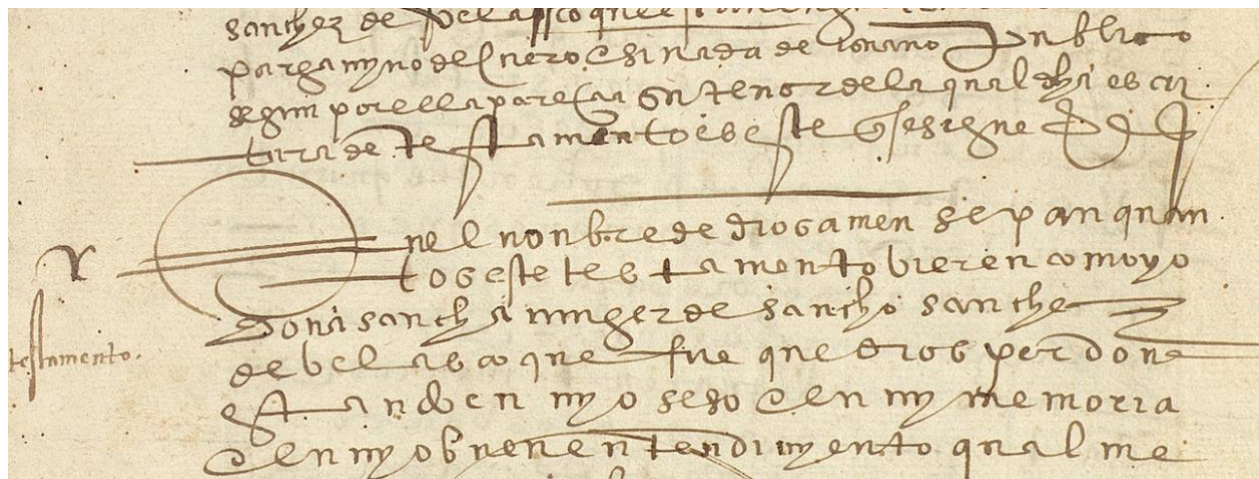 sanchez de velasco que
pargamyno de cuero e sinada de escrivano publico
segun por ella parescia su tenor de la qual dha escri
tura de testamento es este que se sigue
En el nonbre de dios amen sepan quan
tos este testamento vieren como yo
testamento.
doña sancha muger de sancho sanchez
de belasco que fue que dios perdone
estando en myo seso e en my memoria
e en myo buen entendimyento qual me